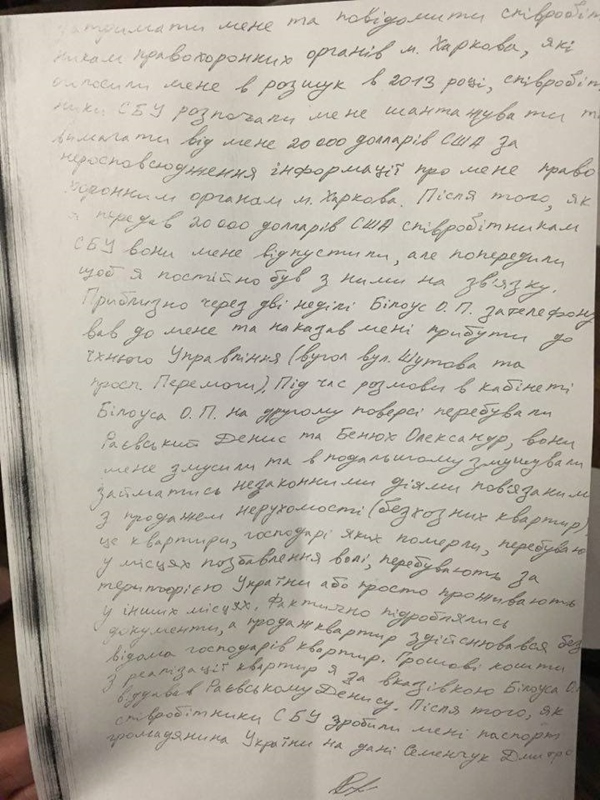 затримати мене та повідомити співробіт
никам правоохоронних органів м. Харкова, які
оголосили мене в розшук в 2013 році, співробіт
ники СБУ розпочали мене шантажувати та
вимагати від мене 20 000 долларів США за
нерозповсюдження інформації про мене право
хоронним органам м. Харкова. Після того, як
я передав 20 000 долларів США співробітникам
СБУ вони мене відпустили, але попередили
щоб я постійно був з ними на зв'язку.
Приблизно через дві неділі Білоус О.П. зателефону
вав до мене та наказав мені прибути до
їхнього Управління (вугол вул. Шутова та
просп. Перемоги). Під час розмови в кабінеті
Білоуса О.П. на другому поверсі перебували
Раєвський Денис та Бенюх Олександр, вони
мене змусили та в подальшому змушували
займатись незаконними діями пов'язаними
з продажем нерухомості (безхозних квартир)
це квартири, господарі яких померли, перебувають
у місцях позбавлення волі, перебувають за
територією України або просто проживають
у інших місцях. Фактично підроблялись
документи, а продаж квартир здійснювався без
відома господарів квартир. Грошові кошти
з реалізації квартир я за вказівкою Білоуса О.П.
віддавав Раєвському Денису. Після того, як
співробітники СБУ зробили мені паспорт
громадянина України на дані Семенчук Дмитро